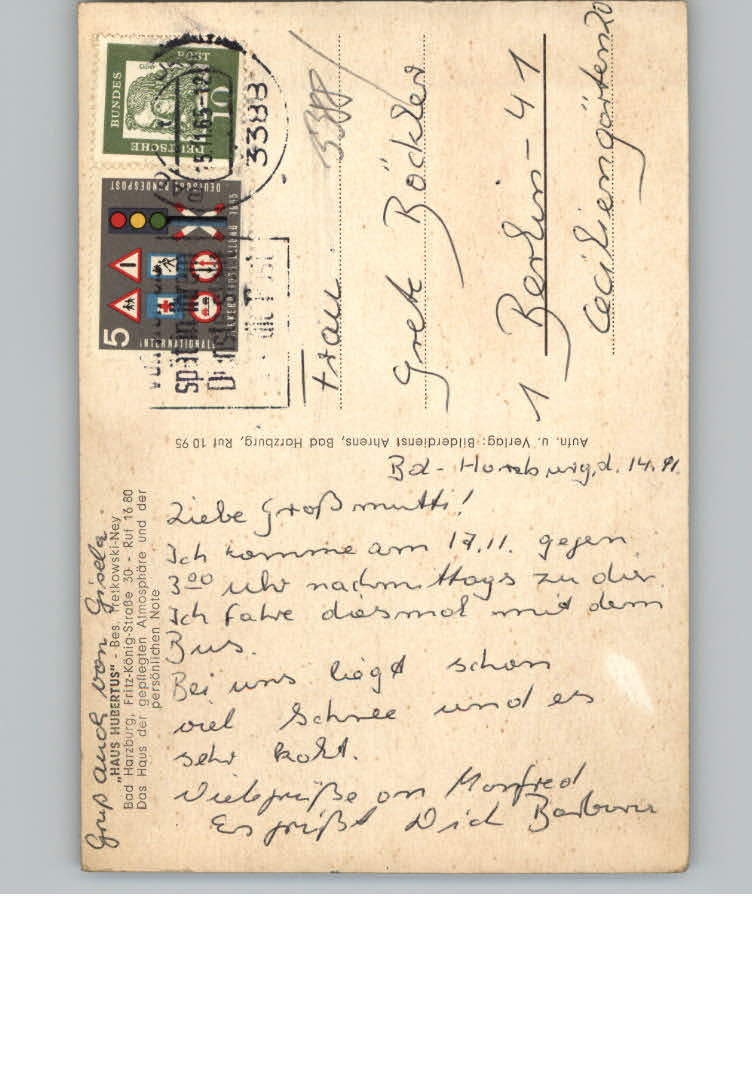 "HAUS HUBERTUS" - Bes. Fretkowski-Ney
Bad Harzburg, Fritz-König-Straße 30 - Ruf 16 80
Das Haus der gepflegten Atmosphäre und der
persönlichen Note
Gruß auch von Gisela
Bd-Harzburg, d. 14.11.
Liebe Großmutti!
Ich komme am 17.11. gegen
3⁰⁰ Uhr nachmittags zu dir.
Ich fahre diesmal mit dem
Bus.
Bei uns liegt schon
viel Schnee und es
sehr kalt.
Viele grüße an Manfred
Es grüßt Dich Barbara
Aufn. u. Verlag: Bilderdienst Ahrens, Bad Harzburg, Ruf 10 95
3388
Frau
Grete Böckler
1 Berlin-41
Cäciliengärten 20
DEUTSCHE BUNDESPOST
10
DEUTSCHE BUNDESPOST
INTERNATIONALE VERKEHRSAUSSTELLUNG 1965
5
15.11.65-12
3388